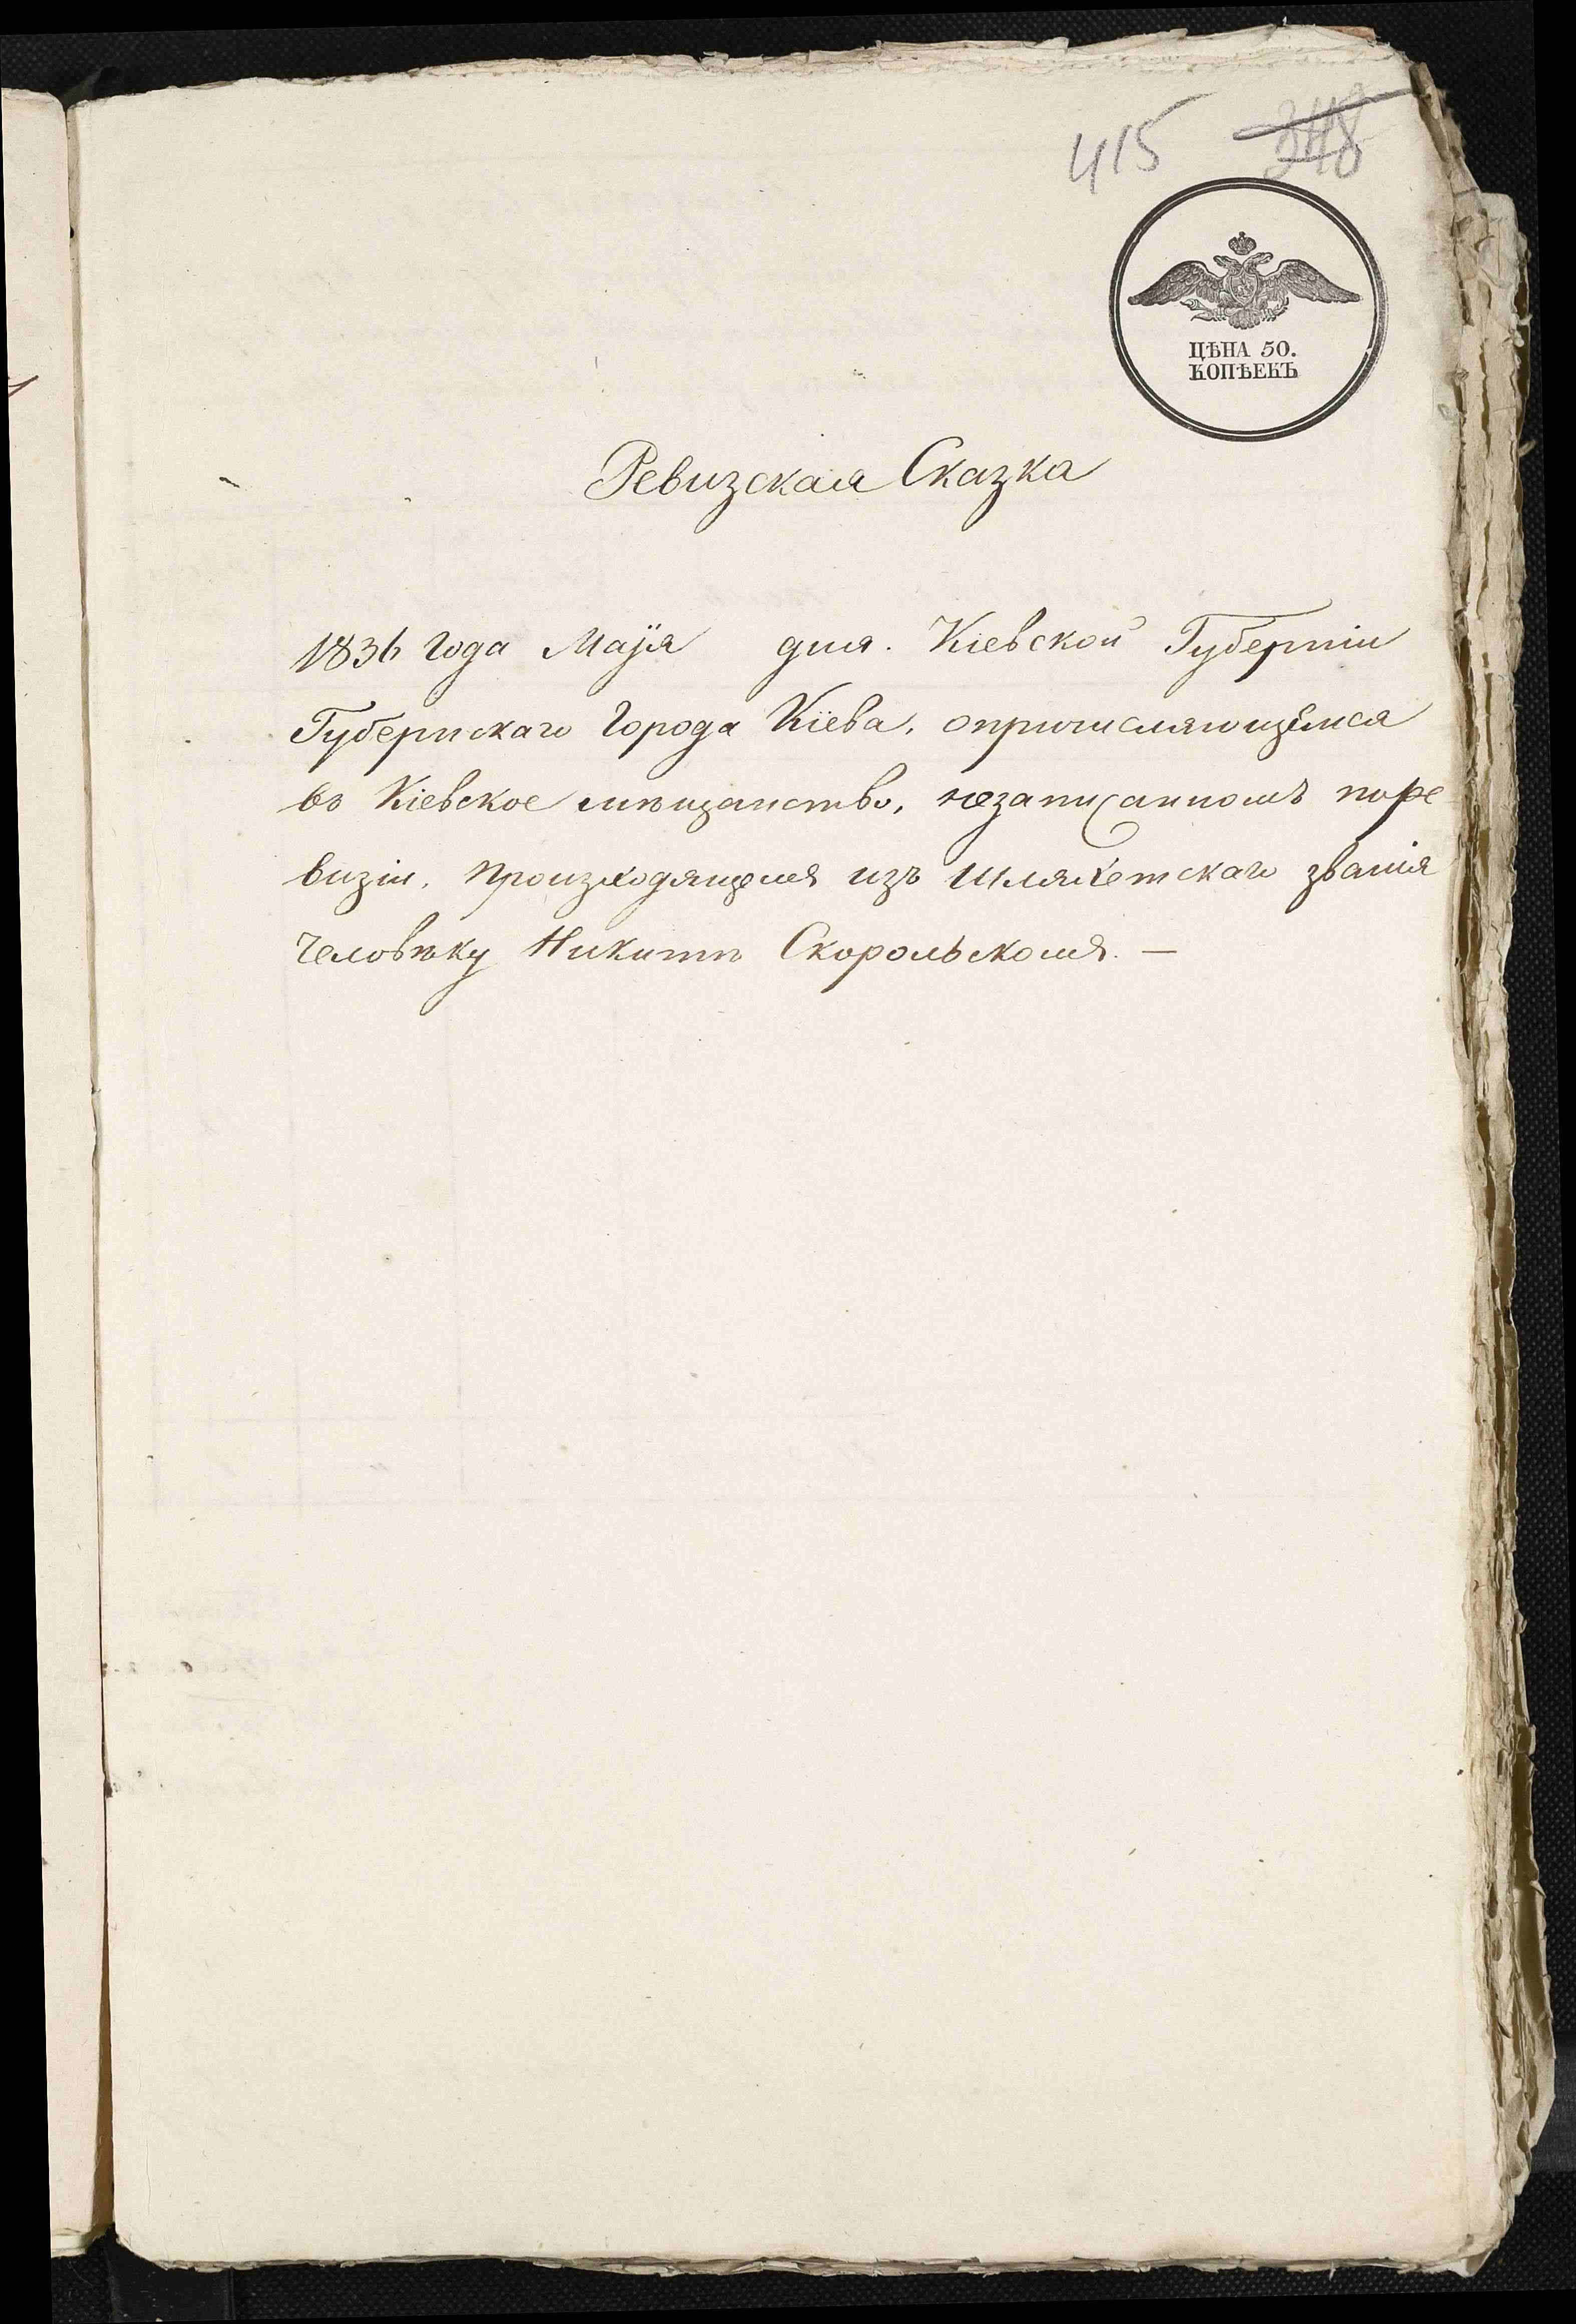 415 348
ЦѢНА 50.
КОПѢЕКЪ
Ревизская Сказка
1836 Года Маія дня. Кіевской Губерніи
Губернскаго Города Кіева, опричисляющемся
въ Кіевское мѣщанство, незаписанномъ поре
визіи, происходящемъ изъ Шляхетскаго званія
Человѣку Никитѣ Скорольскомъ. —